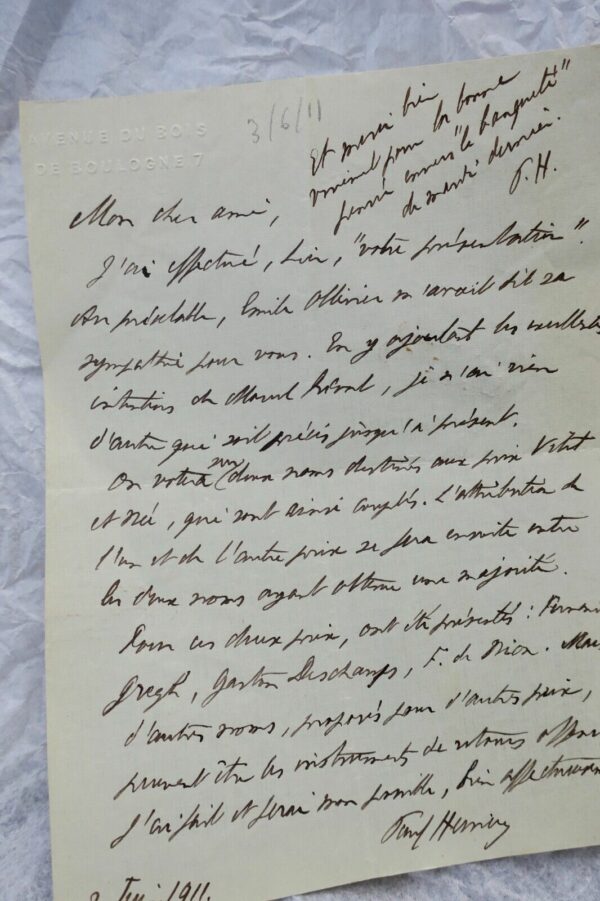 AVENUE DU BOIS
DE BOULOGNE 7
3/6/11
Et merci bien
vivement pour la bonne
pensée envers "le banquet"
de mardi dernier.
P. H.
Mon cher ami,
J'ai effectué, hier, "votre présentation".
Au préalable, Emile Ollivier m'avait dit sa
sympathie pour vous. En y ajoutant les excellentes
intentions de Marcel Prévost, je n'ai rien
d'autre qui soit précis jusqu'à présent.
On votera sur deux noms destinés aux prix Vitet
et Née, qui sont ainsi couplés. L'attribution de
l'un et de l'autre prix se fera ensuite entre
les deux noms ayant obtenu une majorité.
Pour ces deux prix, ont été présentés :
Gregh, Gaston Deschamps, F. de Nion. Mais
d'autres noms, proposés pour d'autres prix,
peuvent être les instruments de retours
J'ai fait et ferai mon possible, bien
Paul Hervieu
1911.